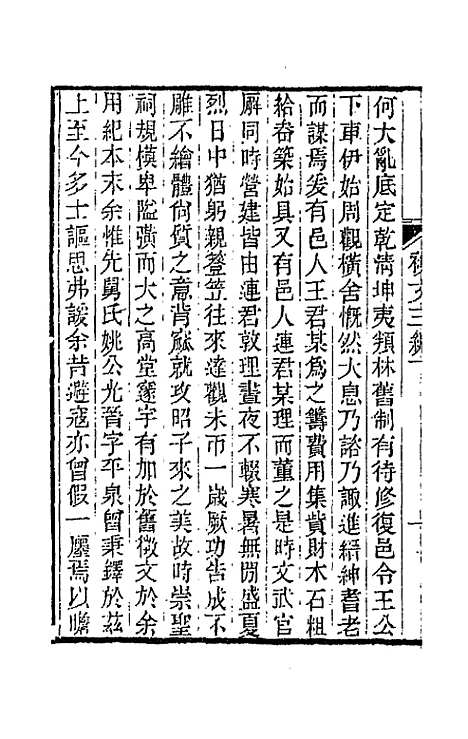 何大亂底定乾清坤夷頖林舊制有待修復邑令王公
下車伊始周觀橫舍慨然大息乃諮乃諏進縉紳耆老
而謀焉爰有邑人王君某爲之籌費用集貲財木石粗
給畚築始具又有邑人連君某理而董之是時文武官
廨同時營建皆由連君敦理晝夜不輟寒暑無閒盛夏
烈日中猶躬親簦笠往來達觀未帀一歲厥功告成不
雕不繪體尙質之意肯獻就攻昭子來之美故時崇聖
祠規模卑隘彍而大之高堂邃宇有加於舊徵文於余
用紀本末余惟先舅氏姚公光晉字平泉曾秉鐸於茲
上至今多士謳思弗諼余昔避寇亦曾假一廛焉以瞻